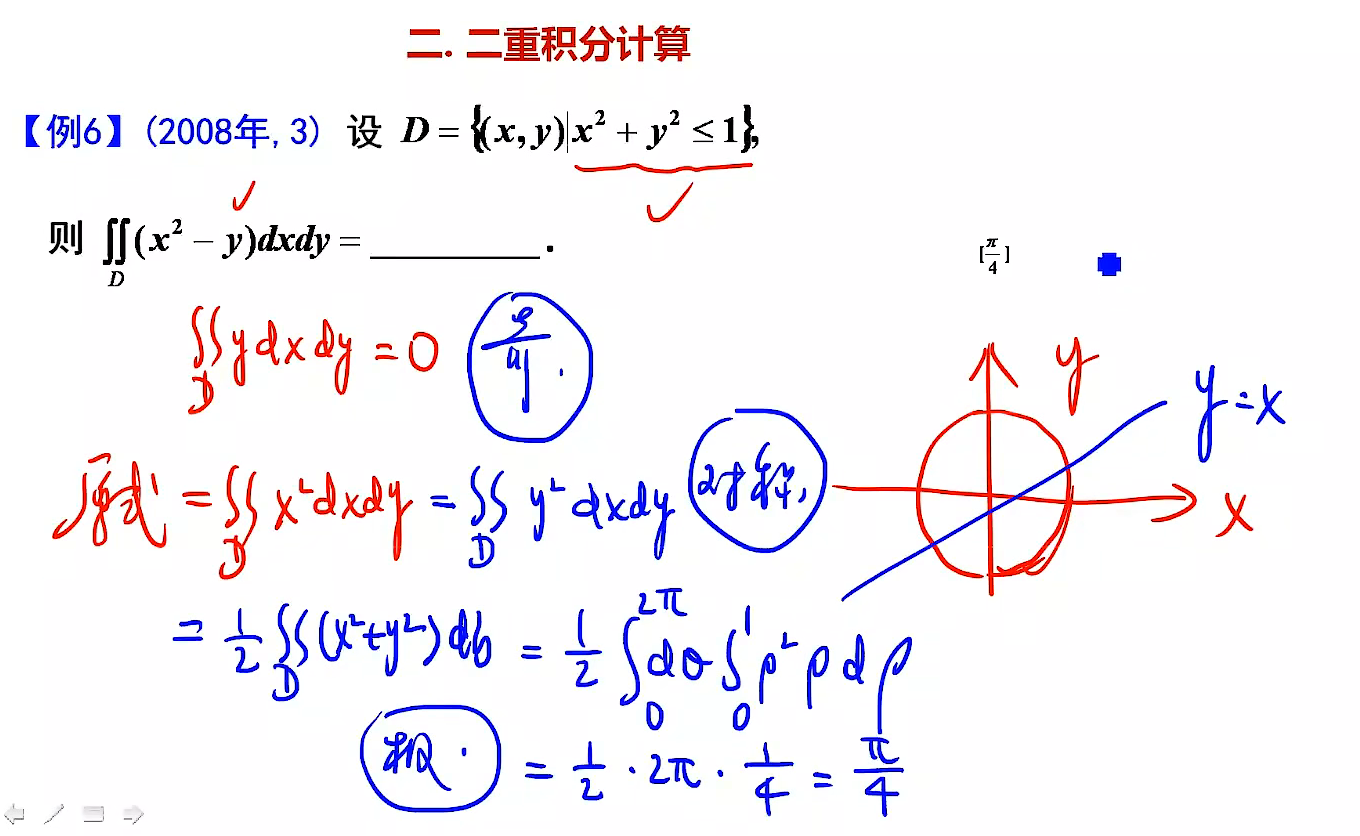 二. 二重积分计算
【例6】(2008年, 3) 设 D = {(x, y)|x² + y² ≤ 1},
则 ∬_D (x² − y)dxdy = ________ .
[π/4]
∬_D y dx dy = 0 奇/y.
y
y = x
x
原式 = ∬_D x² dxdy = ∬_D y² dxdy 对称,
= 1/2 ∬_D (x²+y²) dσ = 1/2 ∫_0^{2π} dθ ∫_0^1 ρ² ρ dρ
极.
= 1/2 · 2π · 1/4 = π/4